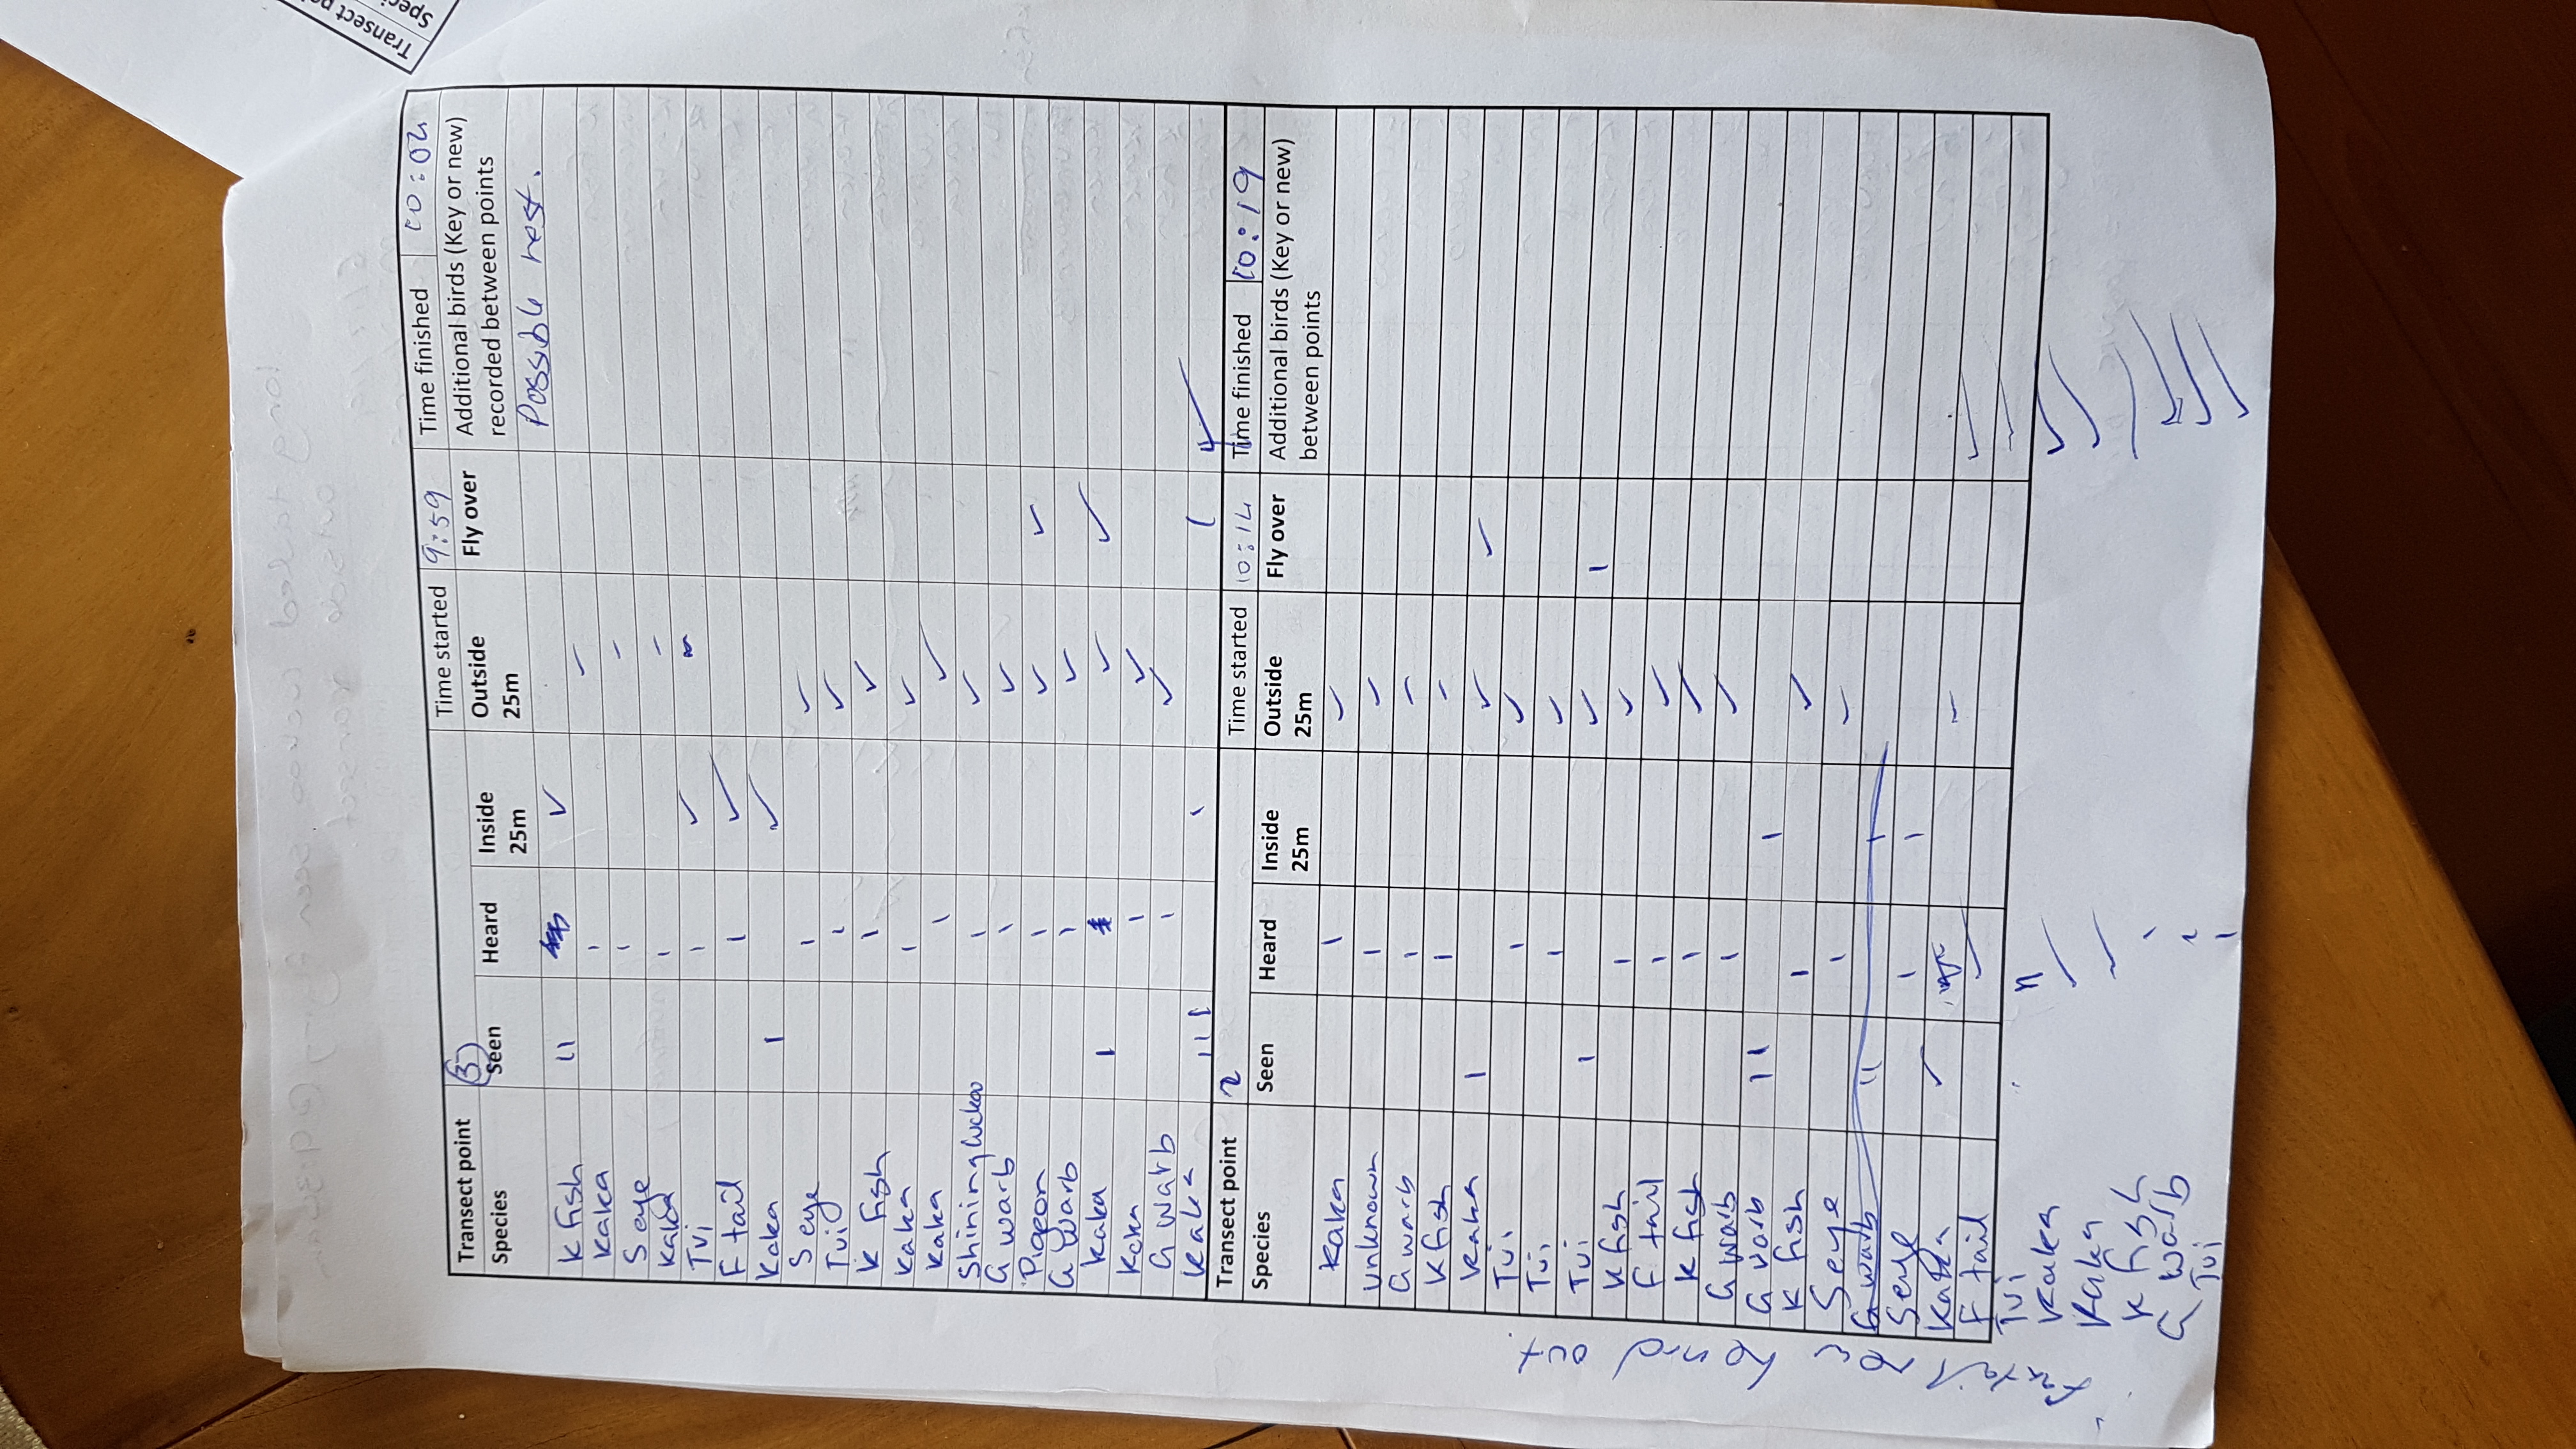 Transect point 3 Time started 9:59 Time finished 10:04
Species Seen Heard Inside 25m Outside 25m Fly over Additional birds (Key or new) recorded between points
K fish 11 ✓ Possible nest.
Kaka ı ✓
Seye ı ✓
Kaka ı ✓
Tui ı ✓
F tail ı ✓
Kaka ı ✓
Seye ı ✓
Tui ı ✓
K fish ı ✓
Kaka ı ✓
Kaka ı ✓
Shining Cuckoo ı ✓
G warb ı ✓
Pigeon ı ✓ ✓
G warb ı ✓
Kaka ı ✓ ✓
Kaka ı ✓
G warb ı ✓
Kaka 111 ı ı ✓
Transect point 2 Time started 10:14 Time finished 10:19
Species Seen Heard Inside 25m Outside 25m Fly over Additional birds (Key or new) between points
Kaka ı ✓
Unknown ı ✓
G warb ı ✓
K fish ı ✓
Kaka ı ✓ ✓
Tui ı ✓
Tui ı ✓
Tui ı ✓ ı
K fish ı ✓
F tail ı ✓
K fish ı ✓
G warb ı ✓
G warb 11 ı
K fish ı ✓
Seye ı ✓
G warb 11 ı
Seye ı ı
Kaka ✓ ✓
F tail ✓ ✓
Tui
Kaka ✓ ✓
Kaka ✓ ✓
K fish ı ✓
G warb ı ✓
Tui ı ✓
fantail new heard out.
Transect